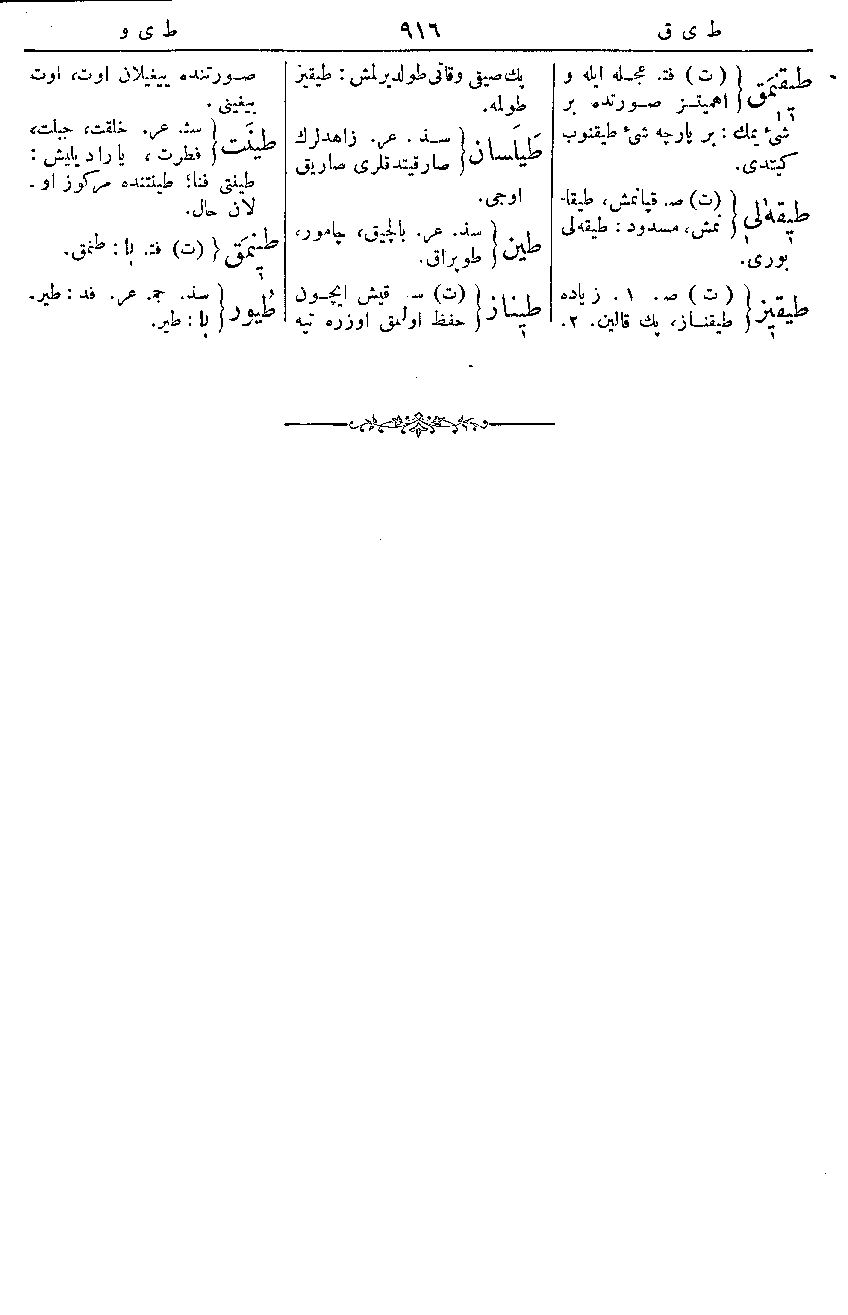 ط ی ق
٩١٦
ط ی و
طیقنمق { (ت) فتـ. عجـله ایله و
اهمیتـز صـورتده بر
شیٴ یمك : بر پارچه شیٴ طیقنوب
كیتدی.
طیقه‌لی { (ت) صـ. قپانمش، طیقا-
نمش، مسدود : طیقه‌لی
بوری.
طیقیز { (ت) صـ. ١. زیاده
طیقنـاز، پك قالین. ٢.
پك صیقی وقاتی طولدیرلمش : طیقیز
طولمه.
طَیلَسان { سـذ. عر. زاهدلرك
صارقیتدقلری صاریق
اوجی.
طین { سذ. عر. بالچیق، چامور،
طوپراق.
طیناز { (ت) سـ. قیش ایچـون
حفظ اولنمق اوزره تپه
صـورتنده ییغیلان اوت، اوت
ییغینی.
طینَت { سثـ. عر. خلقت، جبلت،
فطرت، یارادیلیش :
طینتی فنا؛ طینتنده مركوز او-
لان حال.
طینمَق { (ت) فتـ. با : طنمق.
طُیور { سذ. جمـ. عر. فد : طیر.
با : طیر.